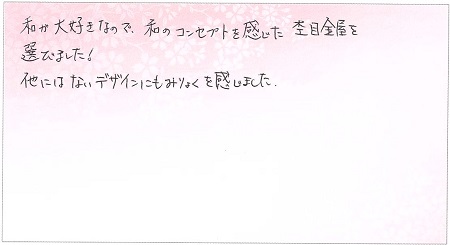 和が大好きなので、和のコンセプトを感じた 杢目金屋を
選びました!
他にはないデザインにもみりょくを感じました.